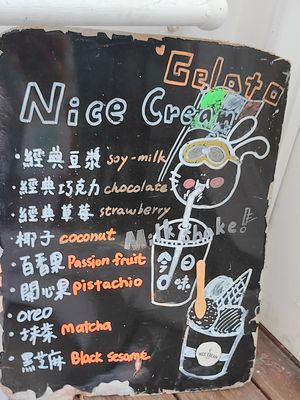 Gelato
Nice Cream
經典豆漿 soy-milk
經典巧克力 chocolate
經典草莓 strawberry
Milkshake!
椰子 coconut
百香果 Passion fruit
今日
口味
開心果 pistachio
oreo
抹茶 Matcha
黑芝麻 Black sesame
NICE CREAM